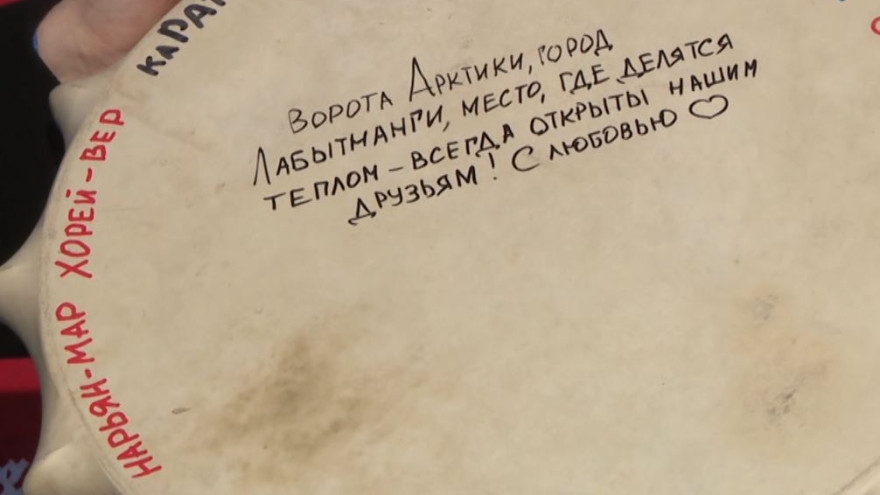 ВОРОТА АРКТИКИ, ГОРОД
ЛАБЫТНАНГИ, МЕСТО, ГДЕ ДЕЛЯТСЯ
ТЕПЛОМ – ВСЕГДА ОТКРЫТЫ НАШИМ
ДРУЗЬЯМ! С ЛЮБОВЬЮ
НАРЬЯН-МАР ХОРЕЙ-ВЕР